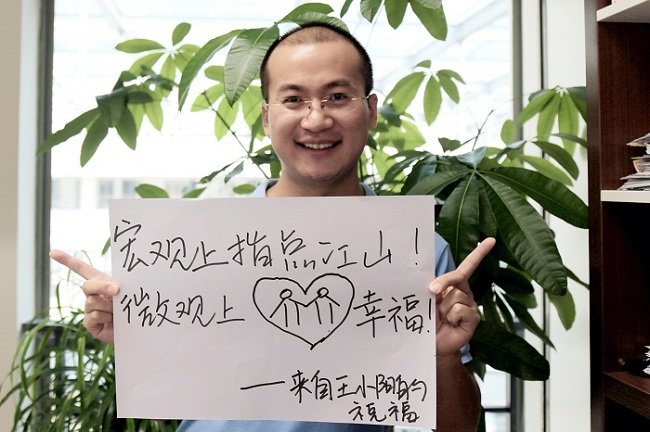 宏观上指点江山！
微观上幸福！
——来自王小阳的
祝福